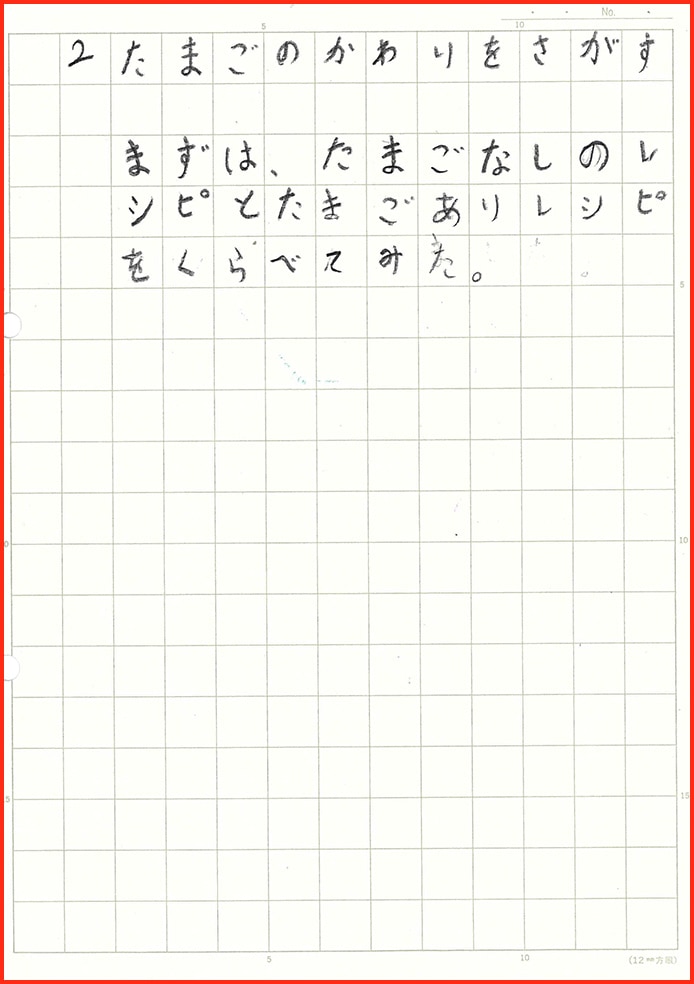 No.
5 10
2 たまごのかわりをさがす
まずは、たまごなしのレ
シピとたまごありレシピ
をくらべてみた。
5
10
15
5 10
(12㎜方眼)